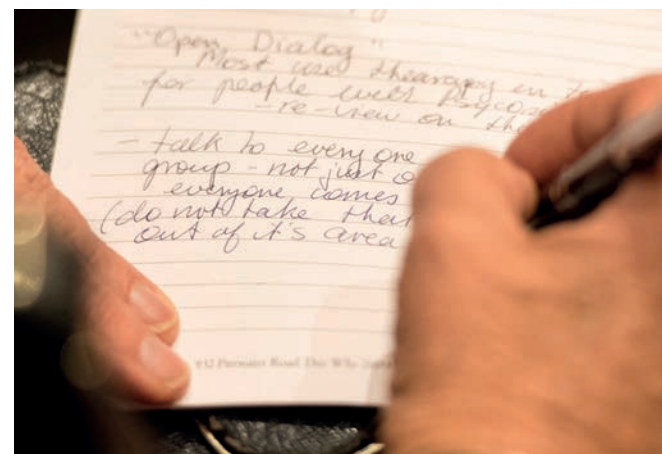 "Open Dialog"
Most used thearapy in
for people with Psycose
-re-view on the
- talk to everyone
group - not just
everyone comes
(do not take that
out of it's area
Road, Dee Why